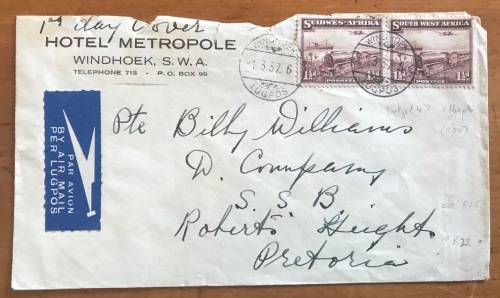 1st day Cover
HOTEL METROPOLE
WINDHOEK, S. W. A.
TELEPHONE 715 - P. O. BOX 99
SUIDWES-AFRIKA
SOUTH WEST AFRICA
1½d
1½d
POSTAGE
WINDHOEK
-1. 3. 37. 6
LUGPOS
LUGPOS
PAR AVION
BY AIR MAIL
PER LUGPOS
Pte Billy Williams
D. Company
S. S. B.
Roberts Height
Pretoria